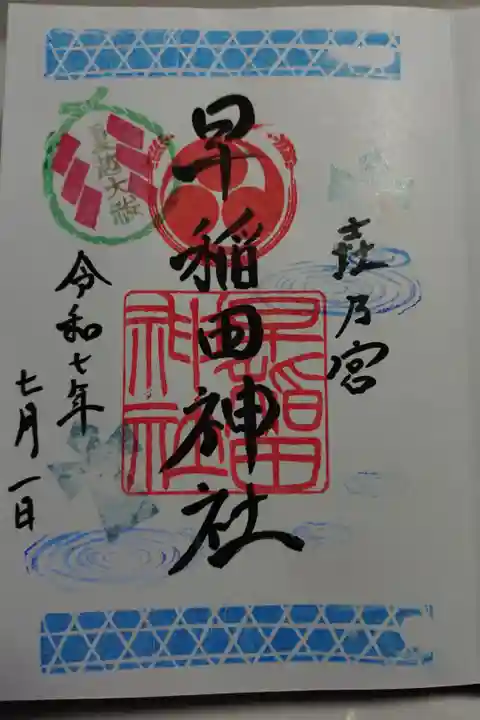 乃宮
早稲田神社
早稲田神社
夏越大祓
令和七年
七月一日